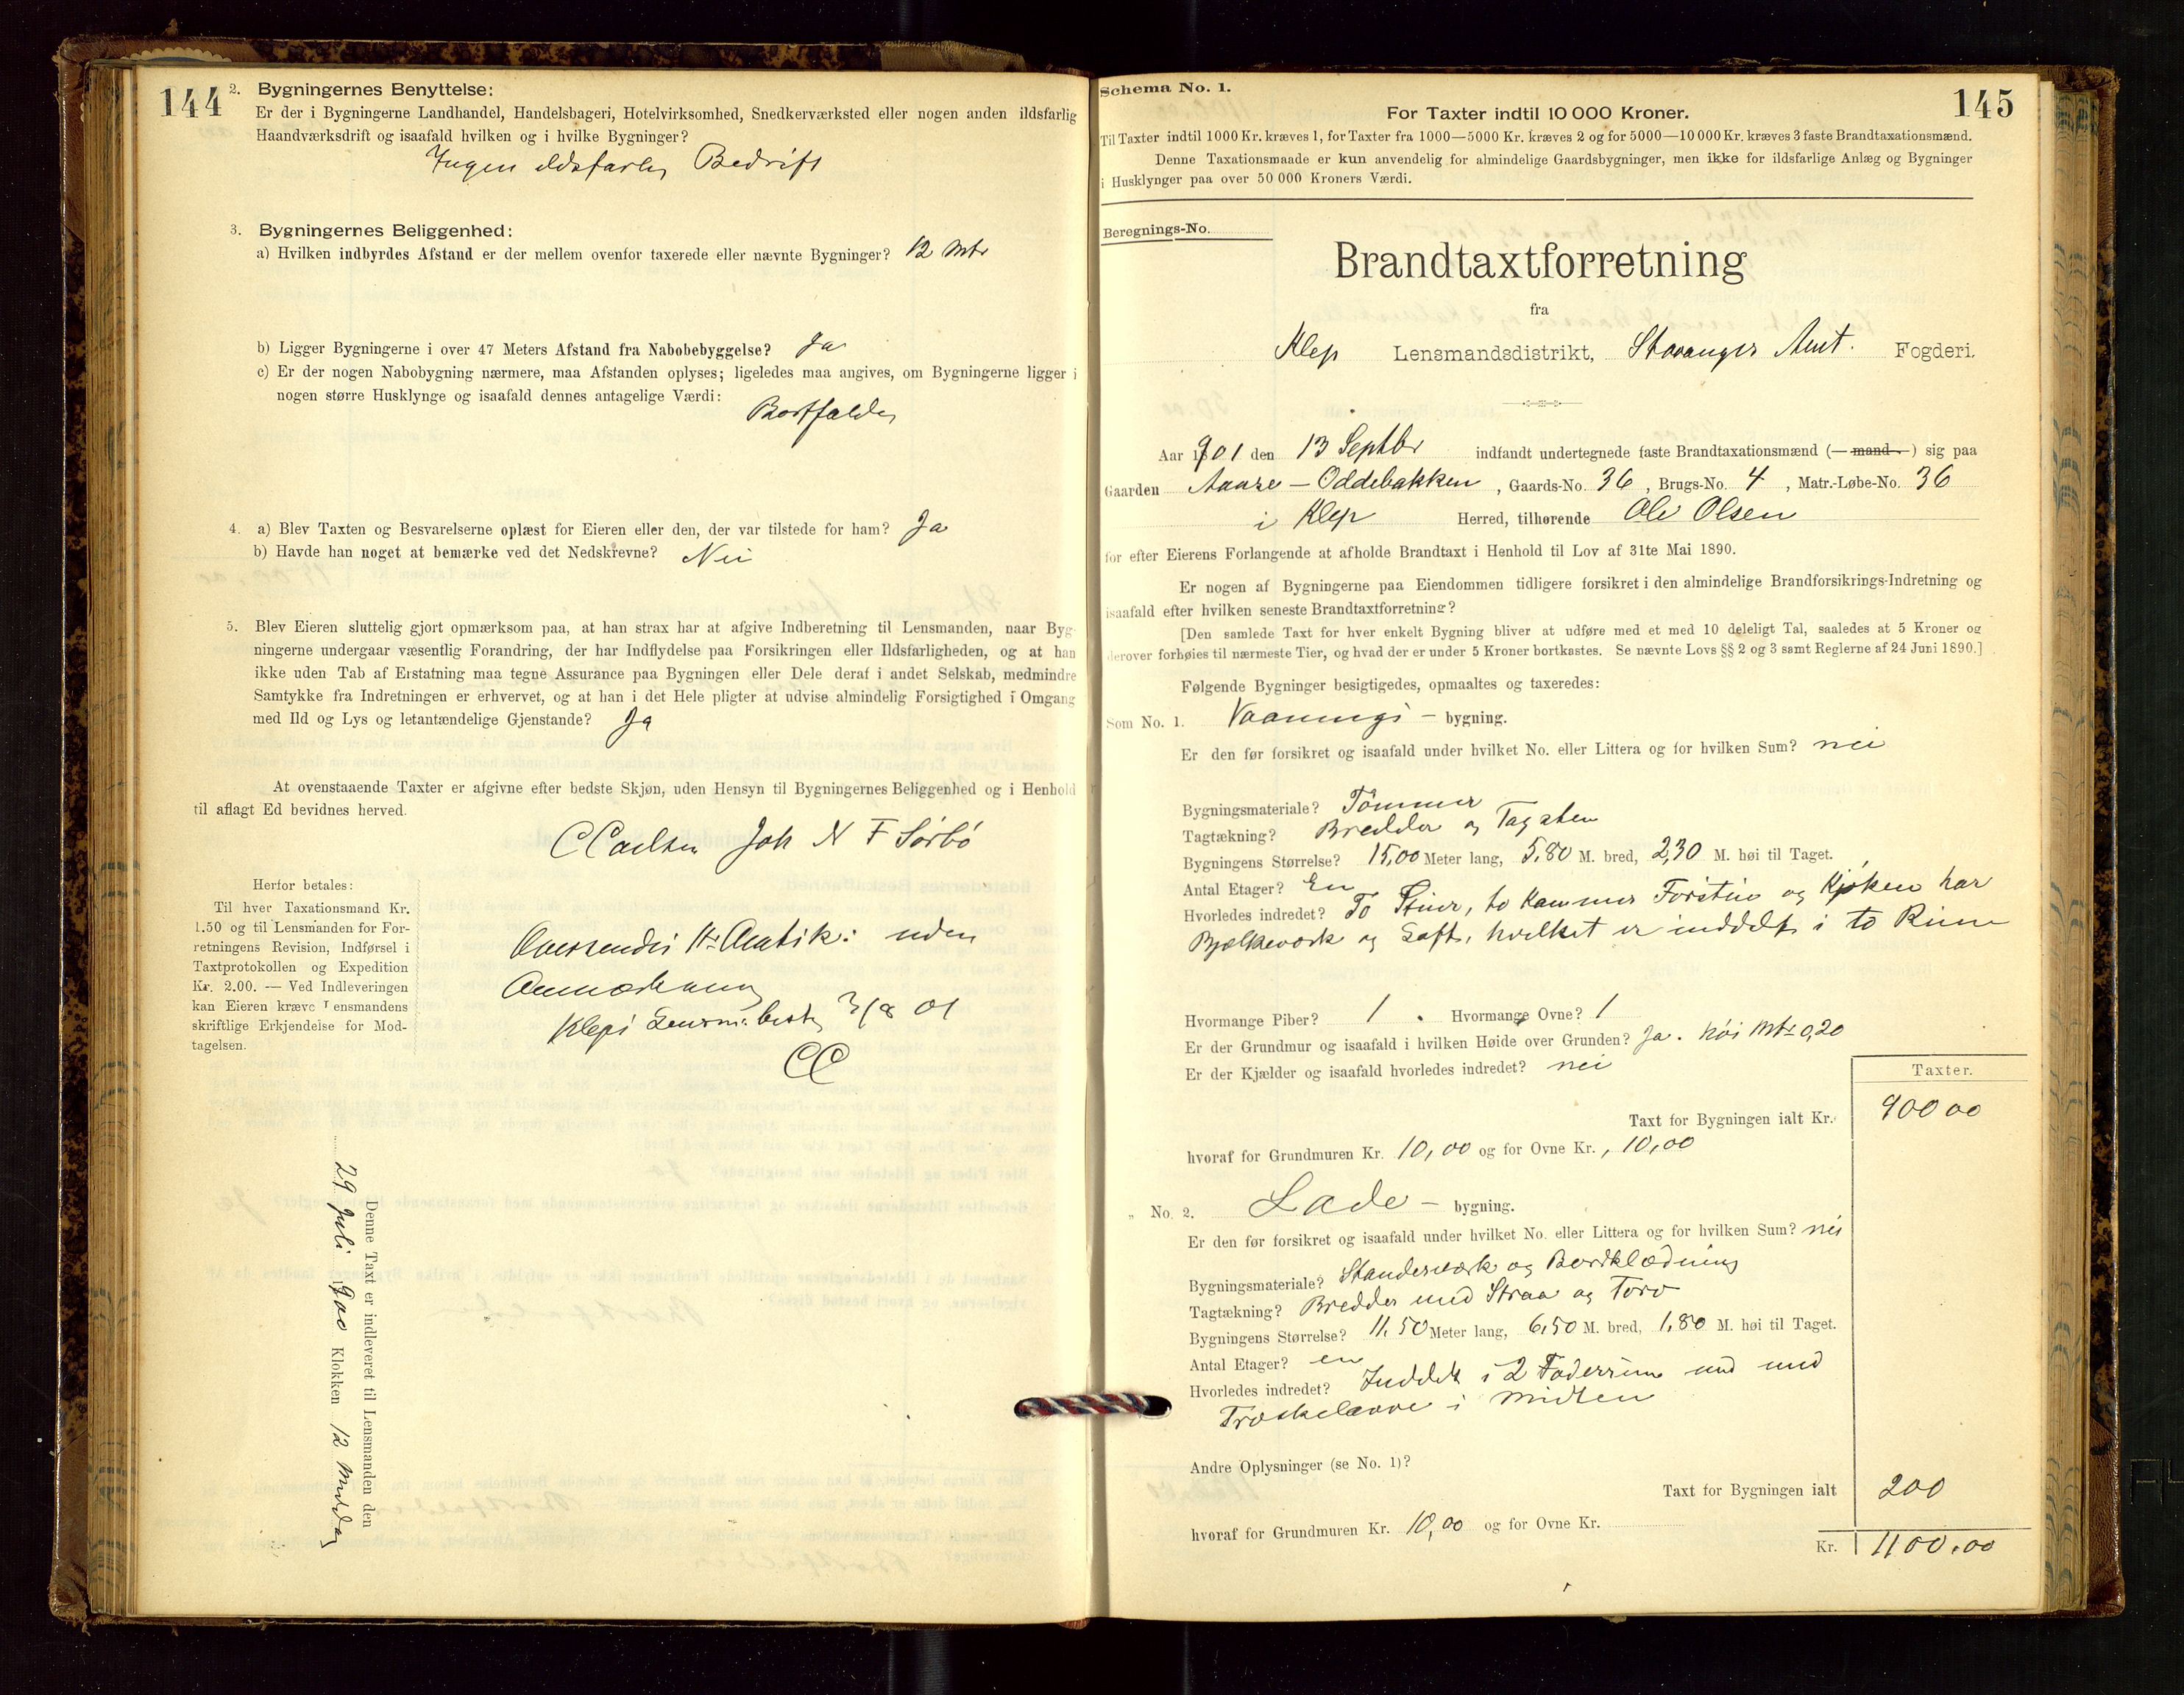 144
2. Bygningernes Benyttelse:
Er der i Bygningerne Landhandel, Handelsbageri, Hotelvirksomhed, Snedkerværksted eller nogen anden ildsfarlig
Haandværksdrift og isaafald hvilken og i hvilke Bygninger?
Ingen ildsfarlig Bedrift
3. Bygningernes Beliggenhed:
a) Hvilken indbyrdes Afstand er der mellem ovenfor taxerede eller nævnte Bygninger? 12 Mtr
b) Ligger Bygningerne i over 47 Meters Afstand fra Nabobebyggelse? Ja
c) Er der nogen Nabobygning nærmere, maa Afstanden oplyses; ligeledes maa angives, om Bygningerne ligger i
nogen større Husklynge og isaafald dennes antagelige Værdi:
Bortfalder
4. a) Blev Taxten og Besvarelserne oplæst for Eieren eller den, der var tilstede for ham? Ja
b) Havde han noget at bemærke ved det Nedskrevne? Nei
5. Blev Eieren sluttelig gjort opmærksom paa, at han strax har at afgive Indberetning til Lensmanden, naar Byg-
ningerne undergaar væsentlig Forandring, der har Indflydelse paa Forsikringen eller Ildsfarligheden, og at han
ikke uden Tab af Erstatning maa tegne Assurance paa Bygningen eller Dele deraf i andet Selskab, medmindre
Samtykke fra Indretningen er erhvervet, og at han i det Hele pligter at udvise almindelig Forsigtighed i Omgang
med Ild og Lys og letantændelige Gjenstande? Ja
At ovenstaaende Taxter er afgivne efter bedste Skjøn, uden Hensyn til Bygningernes Beliggenhed og i Henhold
til aflagt Ed bevidnes herved.
Joh N F Sørbø
Herfor betales:
Til hver Taxationsmand Kr.
1.50 og til Lensmanden for For-
retningens Revision, Indførsel i
Taxtprotokollen og Expedition
Kr. 2.00. — Ved Indleveringen
kan Eieren kræve Lensmandens
skriftlige Erkjendelse for Mod-
tagelsen.
uden
Anmærkning
01
CC
Denne Taxt er indleveret til Lensmanden den
29 Juli 1900 Klokken 12 Middag
Schema No. 1.
145
For Taxter indtil 10 000 Kroner.
Til Taxter indtil 1000 Kr. kræves 1, for Taxter fra 1000—5000 Kr. kræves 2 og for 5000—10 000 Kr. kræves 3 faste Brandtaxationsmænd.
Denne Taxationsmaade er kun anvendelig for almindelige Gaardsbygninger, men ikke for ildsfarlige Anlæg og Bygninger
i Husklynger paa over 50 000 Kroners Værdi.
Beregnings-No.
Brandtaxtforretning
fra
Klep Lensmandsdistrikt, Stavanger Amt. Fogderi.
Aar 1901 den 13 Septbr indfandt undertegnede faste Brandtaxationsmænd (— mand —) sig paa
Gaarden Aaase — Oddebakken, Gaards-No. 36, Brugs-No. 4, Matr.-Løbe-No. 36
i Klep Herred, tilhørende Ole Olsen
for efter Eierens Forlangende at afholde Brandtaxt i Henhold til Lov af 31te Mai 1890.
Er nogen af Bygningerne paa Eiendommen tidligere forsikret i den almindelige Brandforsikrings-Indretning og
isaafald efter hvilken seneste Brandtaxtforretning?
[Den samlede Taxt for hver enkelt Bygning bliver at udføre med et med 10 deleligt Tal, saaledes at 5 Kroner og
derover forhøies til nærmeste Tier, og hvad der er under 5 Kroner bortkastes. Se nævnte Lovs §§ 2 og 3 samt Reglerne af 24 Juni 1890.]
Følgende Bygninger besigtigedes, opmaaltes og taxeredes:
Som No. 1. Vaanings — bygning.
Er den før forsikret og isaafald under hvilket No. eller Littera og for hvilken Sum? nei
Bygningsmateriale? Tømmer
Tagtækning? Bredder og Tagsten
Bygningens Størrelse? 15,00 Meter lang, 5,80 M. bred, 2,30 M. høi til Taget.
Antal Etager? En
Hvorledes indredet? To Stuer, to Kammer Forstue og Kjøken har
Bjælkeværk og Loft, hvilket er inddelt i to Rum
Hvormange Piber? 1. Hvormange Ovne? 1
Er der Grundmur og isaafald i hvilken Høide over Grunden? Ja. høi Mtr 0,20
Er der Kjælder og isaafald hvorledes indredet? nei
Taxter.
Taxt for Bygningen ialt Kr. 900 00
hvoraf for Grundmuren Kr. 10,00 og for Ovne Kr., 10,00
„ No. 2. Lade — bygning.
Er den før forsikret og isaafald under hvilket No. eller Littera og for hvilken Sum? nei
Bygningsmateriale? Standerværk og Bordklædning
Tagtækning? Bredder med Straa og Torv
Bygningens Størrelse? 11,50 Meter lang, 6,50 M. bred, 1,80 M. høi til Taget.
Antal Etager? en
Hvorledes indredet? Inddelt i 2 Foderrum med med
Træskelaave i Midten
Andre Oplysninger (se No. 1)?
Taxt for Bygningen ialt 200
hvoraf for Grundmuren Kr. 10,00 og for Ovne Kr.
Kr. 1100,00